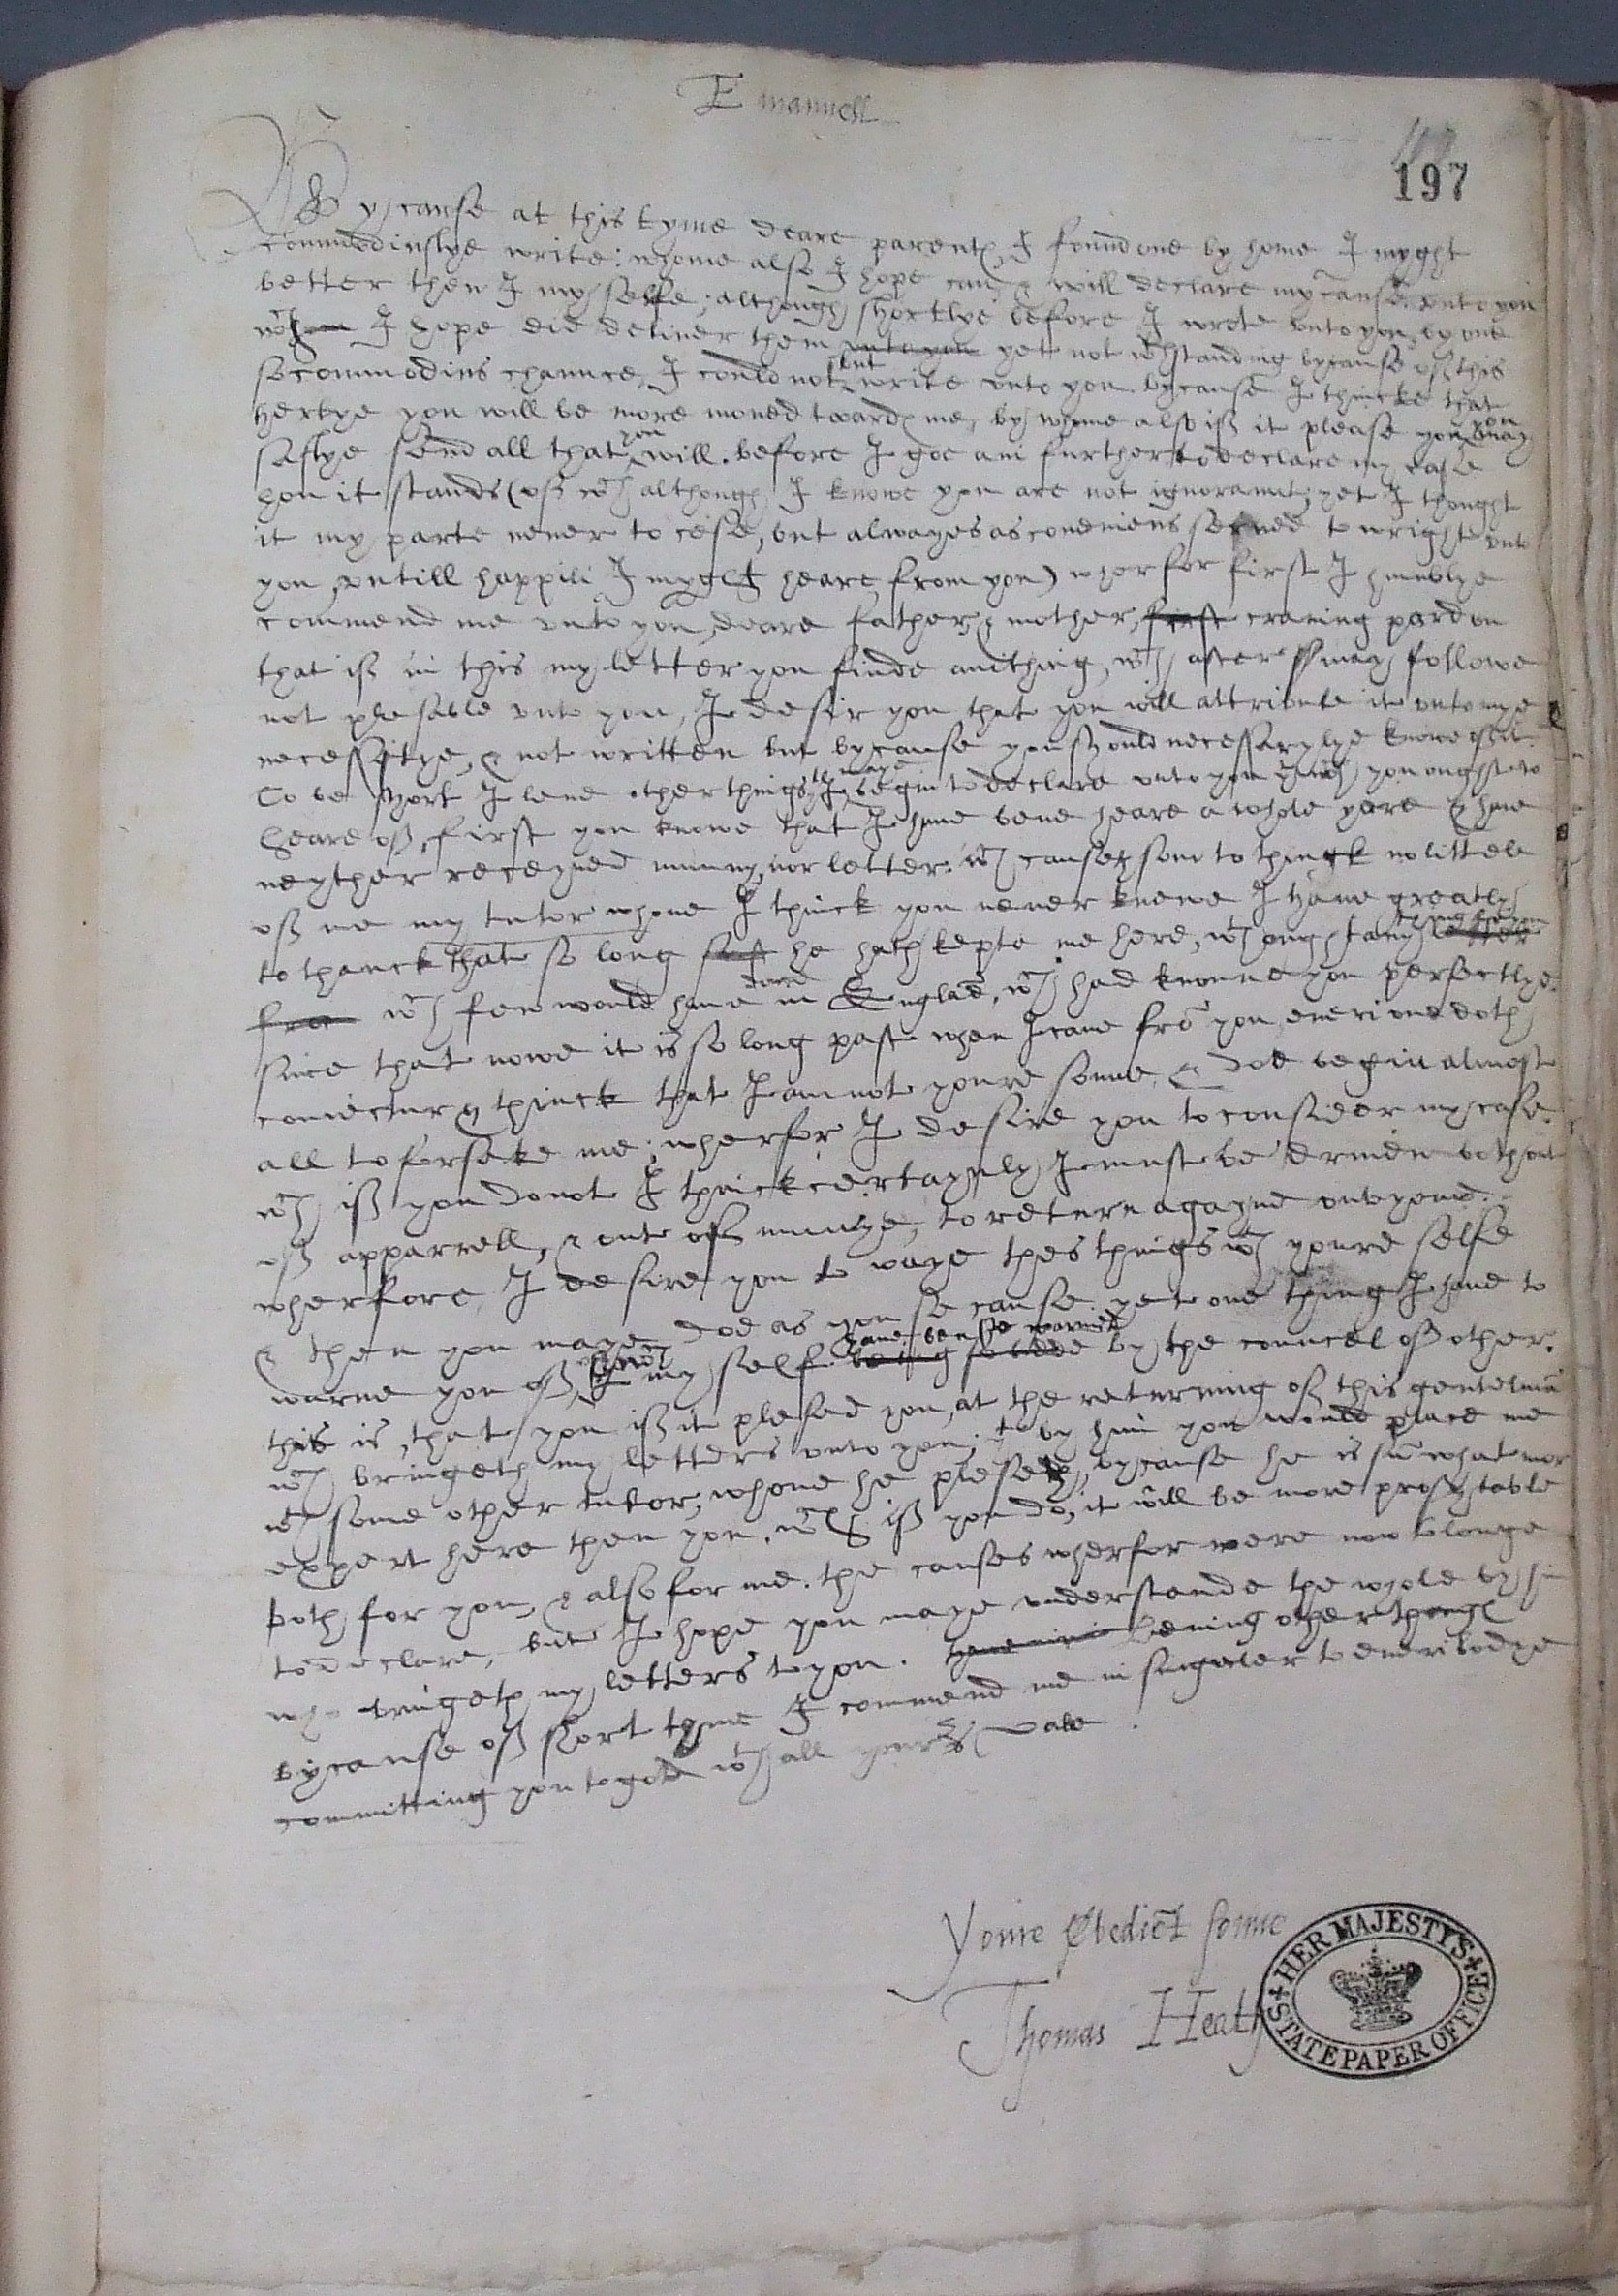 Emanuell
197
Bycause at this tyme deare parents I found one by home I myght
commodiuslye write: whome also I hope can & will declare my cause unto you
better then I my selfe; although shortlye before I wrote unto you by one
wch I hope did deliuer them unto you yet not wthstanding bycause off this
so commodius chaunce, I could not but write unto you. bycause I thincke that
herbye you will be more moued towards me, by whome also iff it please you you may
saflye send all that you will. before I goe ani further to declare my case
hou it stands (off wch although I knowe you are not ignoraunt, yet I thought
it my parte neuer to cese, but alwayes as conueniens serued to wright unto
you, untill happili I myght heare from you) wherfor first I humblye
commend me unto you deare father & mother, first crauing pardon
that iff in this my letter you finde anithing, wch after may followe
not plesable unto you, I desir you that you will attribute it unto mye
necessitye, & not written but bycause you should necessarylye knowe off it.
To be short I leue other things & maye begin to declare unto you wch you ought to
heare off, first you knowe that I haue bene heare a whole yeare & haue
neyther receyued munny, nor letter. wch causeth som to thinck no littele
off me my tutor whome I thinck you neuer knewe I haue greatly
to thanck that so long he hath kepte me here, wch ought any letter
from wch few would haue done in Englād, wch had knowne you perfectlye.
since that nowe it is so long past when I came frō you, eueri one doth
coniectur & thinck that I am not youre sonne, & doe begin almost
all to forsake me; wherfor I desire you to consider my case.
wch iff you do not I thinck certaynly I must be driuen both out
off apparrell, & out off munnye, to returne agayne unto you.
wherfore I desire you to waye thes things wth youre selfe
& then you maye doe as you se cause. yet one thing I haue to
warne you off, wch I my self haue bene warned being by the councel off other.
this is, that you iff it plesed you, at the returning off this gentelmā
wch bringeth my letters unto you; by him you would place me
wth some other tutor, whome he pleseth, bycause he is sūwhat mor
expert here then you. wch iff you do, it will be more proffytable
both for you, & also for me. the causes wherfor were now to longe
to declare, but I hope you maye understande the whole by him
who bringeth my letters to you. leuing other things
bycause off short tyme I commend me in singuler to eueri bodye
committing you to god wth all yours vale.
Youre Obediēt sonne
Thomas Heath
HER MAJESTY'S STATE PAPER OFFICE